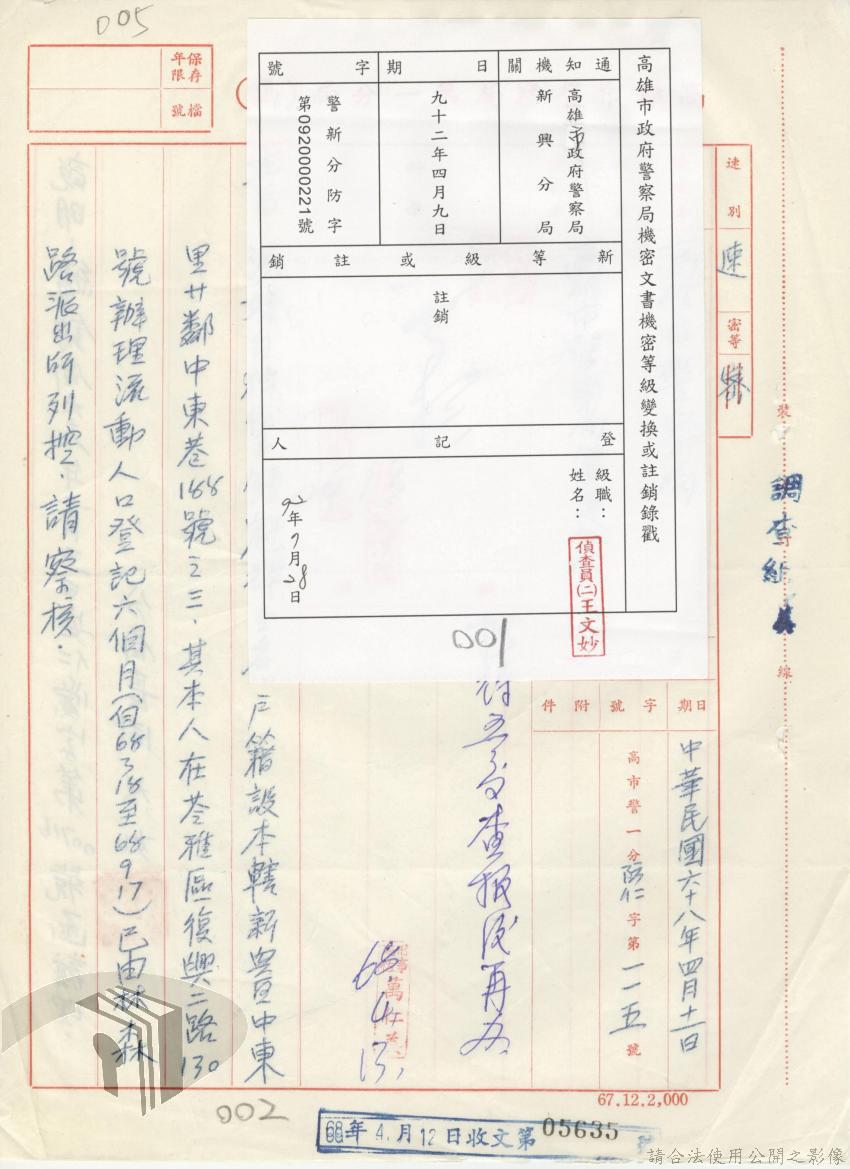 005
保存年限
檔號
高雄市政府警察局機密文書機密等級變換或註銷錄戳
通知機關
日期
字號
高雄市政府警察局
新興分局
九十二年四月九日
警新分防字
第0920000221號
新等級或註銷
註銷
登記人
級職：
姓名：
偵查員(二)王文妙
92年7月28日
001
速別
速
密等
裝
線
調查組
日期
字號
附件
中華民國六十八年四月十一日
高市警一分防仁字第一一五號
查報後再辦
68.4.13.
戶籍設本轄新興區中東
里廿鄰中東巷188號之三．其本人在苓雅區復興二路130
號辦理流動人口登記六個月(自68 3 18至68 9 17)已由林森
路派出所列控．請察核．
67.12.2,000
002
68年4.月12日收文第05635號
請合法使用公開之影像